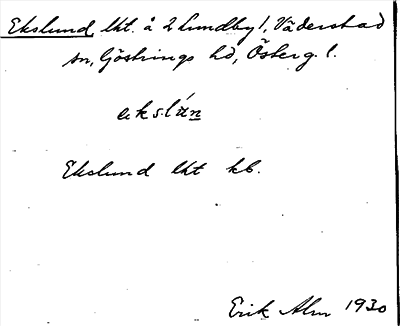 Ekslund, lht. å 2 Lundby 1, Väderstad
sn, Göstrings hd, Österg. l.
ekslún
Ekslund lht kb.
Erik Alm 1930